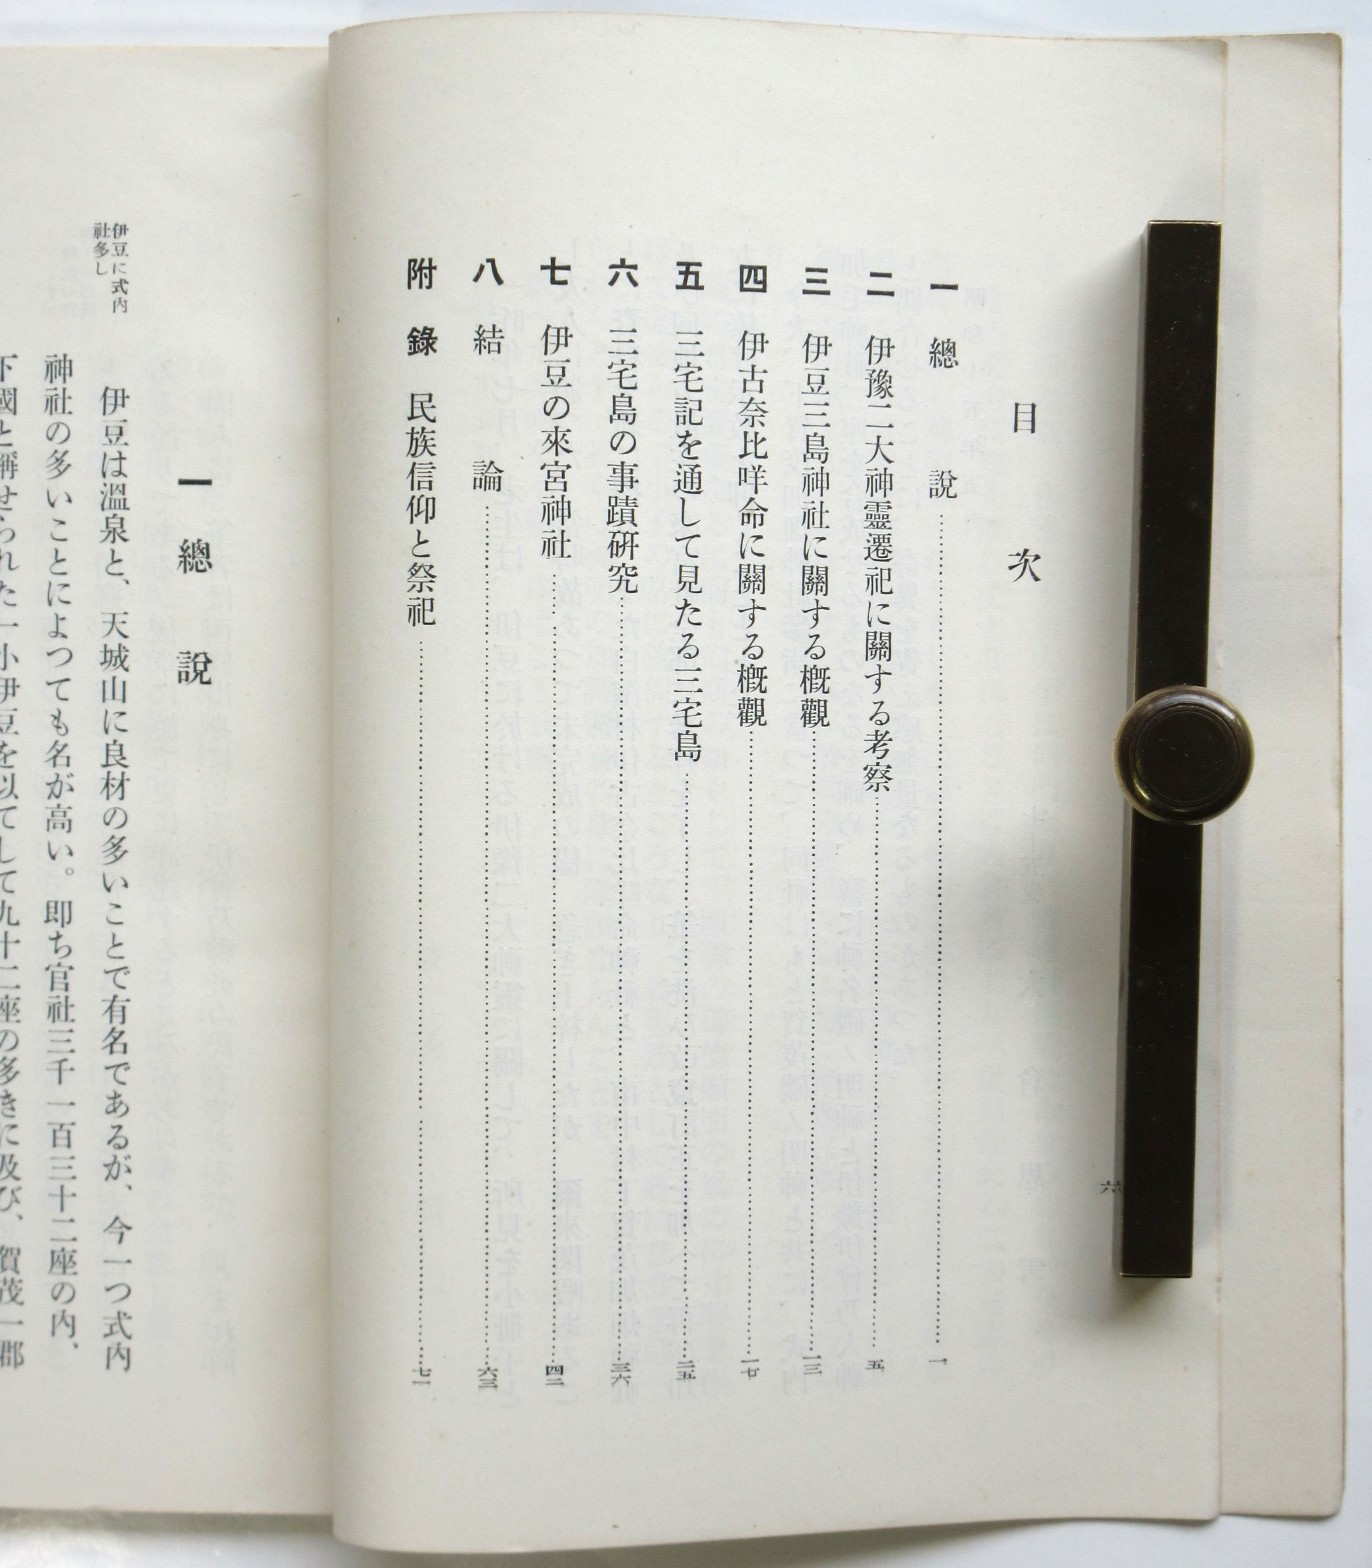 目次
一 總說 一
二 伊豫二大神靈遷祀に關する考察 五
三 伊豆三島神社に關する槪觀 一三
四 伊古奈比咩命に關する槪觀 一七
五 三宅記を通して見たる三宅島 二五
六 三宅島の事蹟硏究 三六
七 伊豆の來宮神社 四二
八 結論 六三
附錄 民族信仰と祭祀 七一
一 總說
伊豆に式内
社多し
伊豆は溫泉と、天城山に良材の多いことで有名であるが、今一つ式内
神社の多いことによつても名が高い。卽ち官社三千一百三十二座の内、
下國と稱せられた一小伊豆を以てして九十二座の多きに及び、賀茂一郡